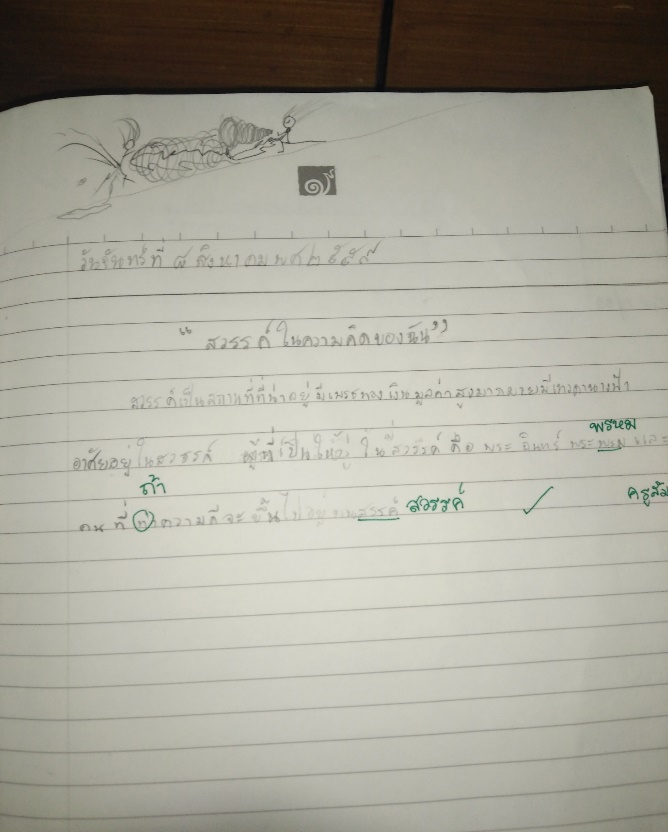 วันจันทร์ที่ ๘ สิงหาคม พศ ๒๕๕๙
"สวรรค์ในความคิดของฉัน"
สวรรค์เป็นสถานที่ที่น่าอยู่ มีเพชรทอง เงิน มูลค่าสูงมากมาย มีเทวดานางฟ้า
อาศัยอยู่ในสวรรค์ ผู้ที่เป็นใหญ่ ในสวรรค์ คือ พระ อินทร์ พระพรม และ
พรหม
ถ้า
คน ที่ ท่ำความดีจะ ขึ้นไปอยู่บนสรรค์ สวรรค์